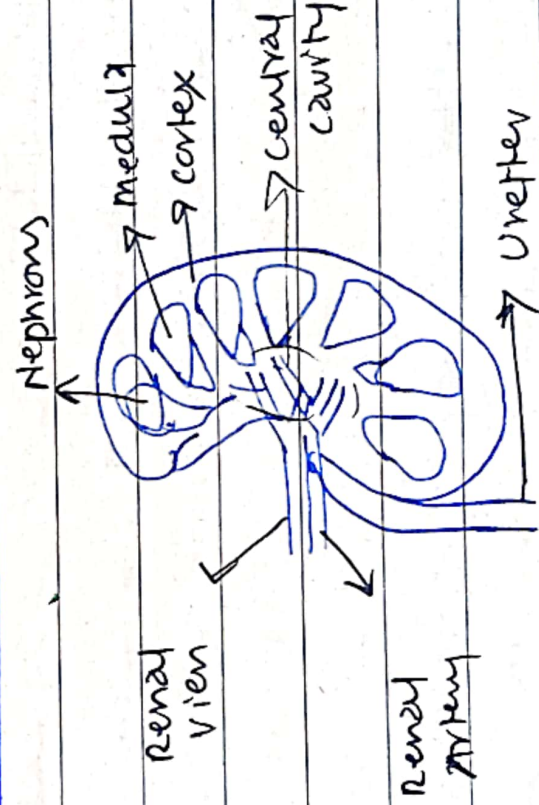 Nephrons
Medula
Cortex
Central
cavity
Uretter
Renal
Vien
Renal
Artery